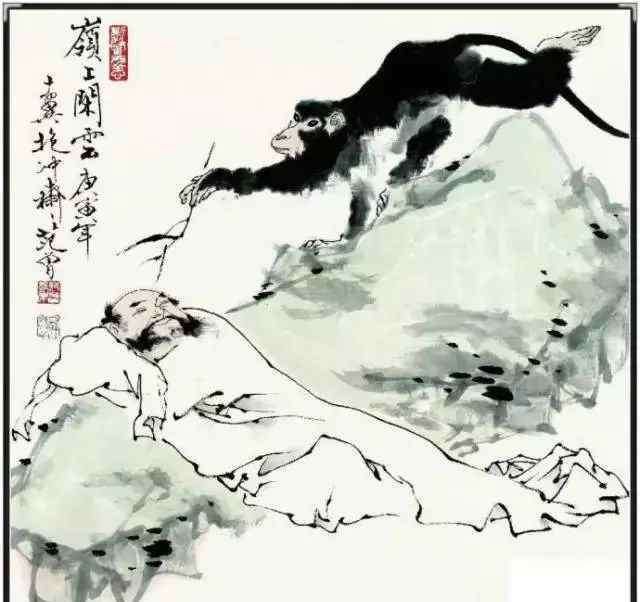 嶺上閑雲 庚寅年
十翼抱冲齋主范曾